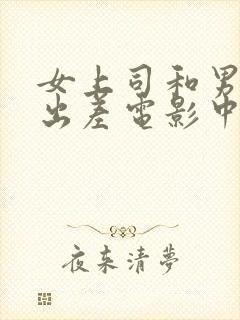 女上司和男
出差电影中
夜来清梦